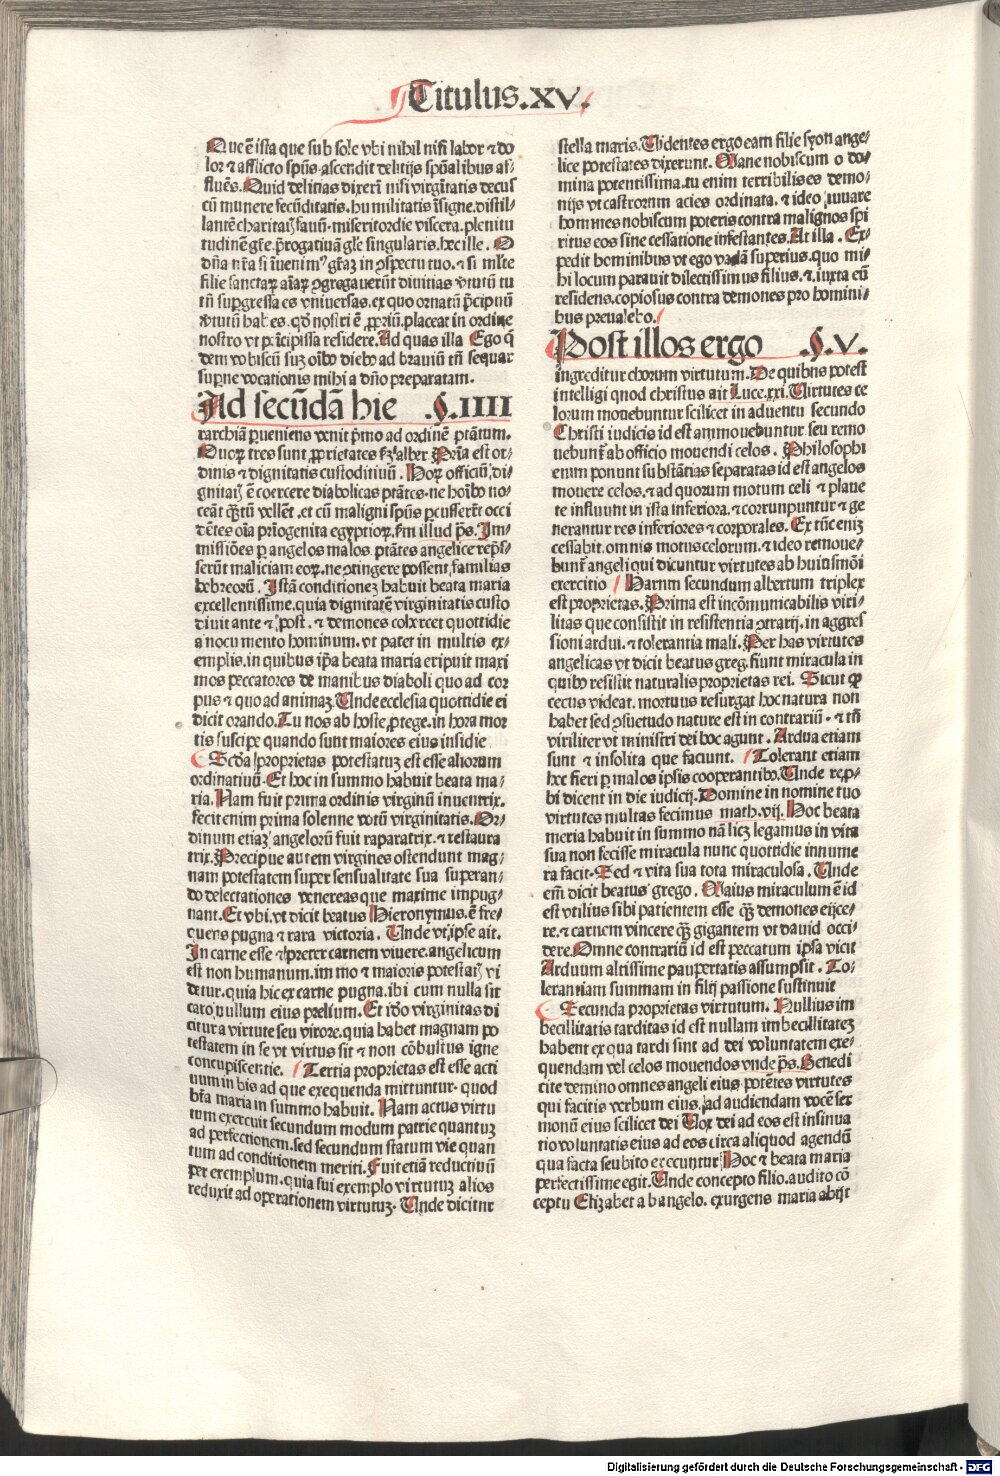 Titulus.XV.
Que ē ista que sub sole vbi nihil nisi labor ⁊ do
lor ⁊ afflictio spūs ascendit delitijs spūalibus af⸗
fluēs. Quid delitias dixerī nisi virgītatis decus
cū munere fecūditatis. humilitatis īsigne. distil⸗
lantē charitatꝭ fauū. misericordie viscera. plenitu
tudinē gr̄e. p̄rogatiuā gl̄e singularis. hec ille. O
dn̄a nr̄a si īuenimꝰ gr̄aꝫ in ꝯspectu tuo. ⁊ si ml̄te
filie sanctaꝝ aīaꝝ ꝯgregauerūt diuitias v̄tutū tu
tn̄ sup̄gressa es vniuersas. ex quo ornatū p̄cipuū
v̄tutū habes. qd̓ nostri ē ꝓpriū. placeat in ordine
nostro vt pr̄icipissa residere. Ad quas illa Ego q̄
dem vobiscū suꝫ oībꝰ diebꝰ ad brauiū tn̄ sequar
sup̄ne vocationis mihi a dn̄o preparatam.
Ad secūdā hie .§.IIII
rarchiā ꝑueniens venit p̄mo ad ordinē ptātum.
Quoꝝ tres sunt ꝓprietates ẜꝫ alber. Pri̅a est or⸗
dinis ⁊ dignitatis custoditiuū. Hoꝝ officiū, di⸗
gnitatꝭ ē coercere diabolicas ptātes. ne hoībꝰ no⸗
ceāt qꝫtū vellēt. et cū maligni spūs ꝑcusserēt occi
dētes oīa pr̄iogenita egyptioꝝ. ẜm illud p̄s. Im⸗
missiōes ꝑ angelos malos. ptātes angelice rep̄s⸗
serūt maliciam eoꝝ. ne ꝯtingere possent familias
hebreorū. Istā conditionez habuit beata maria
excellentissime. quia dignitatē virginitatis custo
diuit ante ⁊ post. ⁊ demones cohercet quottidie
a nocumento hominum. vt patet in multis ex⸗
emplis. in quibus ip̄a beata maria eripuit maxi
mos peccatores de manibus diaboli quo ad cor
pus ⁊ quo ad animaꝫ. Unde ecclesia quottidie ei
dicit orando. Tu nos ab hoste ꝓtege. in hora mor
tis suscipe quando sunt maiores eius insidie
Scd̓a proprietas potestatuꝫ est esse aliorum
ordinatiuū. Et hoc in summo habuit beata ma⸗
ria. Nam fuit prima ordinis virginū inuentrix.
fecit enim prima solenne votū virginitatis. Or⸗
dinum etiaꝫ angelorū fuit raparatrix. ⁊ restaura
trix. Precipue autem virgines ostendunt mag⸗
nam potestatem super sensualitate sua superan⸗
do delectationes venereas que maxime impug⸗
nant. Et vbi. vt dicit beatus Hieronymus. ē fre⸗
quens pugna ⁊ rara victoria. Unde vt ipse ait.
In carne esse ⁊ preter carnem viuere. angelicum
est non humanum. immo ⁊ maioris potestatꝭ vi
detur. quia hic ex carne pugna. ibi cum nulla sit
caro nullum eius prelium. Et iō virginitas di
citur a virtute seu virore. quia habet magnam po
testatem in se vt virtus sit ⁊ non cōbustus igne
concupiscentie. Tertia proprietas est esse acti
uum in his ad que exequenda mittuntur. quod
btā maria in summo habuit. Nam actus virtu
tum exercuit secundum modum patrie quantuꝫ
ad perfectionem. sed secundum statum vie quan
tum ad conditionem meriti. Fuit etiā reductiuū
per exemplum. quia sui exemplo virtutuꝫ alios
reduxit ad operationem virtutuꝫ. Unde dicitur
stella maris. Uidentes ergo eam filie syon ange⸗
lice potestates dixerunt. Mane nobiscum o do⸗
mina potentissima. tu enim terribilis es demo⸗
nijs vt castrorum acies ordinata. ⁊ ideo iuuare
homines nobiscum poteris contra malignos spi
ritus eos sine cessatione infestantes. At illa. Ex⸗
pedit hominibus vt ego vadā superius. quo mi⸗
hi locum parauit dilectissimus filius. ⁊ iuxta eū
residens. copiosus contra demones pro homini⸗
bus preualebo.
Post illos ergo .§.V.
ingreditur chorum virtutum. De quibus potest
intelligi quod christus ait Luce. xxi. Uirtutes ce
lorum mouebuntur scilicet in aduentu secundo
Christi iudicis id est ammouebuntur seu remo
uebunt̄ ab officio mouendi celos. Philosophi
enim ponunt substātias separatas id est angelos
mouere celos. ⁊ ad quorum motum celi ⁊ plane
te influunt in ista inferiora. ⁊ corrunpuntur ⁊ ge
nerantur res inferiores ⁊ corporales. Ex tūc eniꝫ
cessabit. omnis motus celorum. ⁊ ideo remoue⸗
bunt̄ angeli qui dicuntur virtutes ab huiusmōi
exercitio Harum secundum albertum triplex
est proprietas. Prima est incōmunicabilis viri⸗
litas que consistit in resistentia ꝯtrarij. in aggres
sioni ardui. ⁊ tolerantia mali. Per has virtutes
angelicas vt dicit beatus greg. fiunt miracula in
quibꝰ resistit naturalis proprietas rei. Sicut ꝙ
cecus videat. mortuus resurgat hoc natura non
habet sed ꝯsuetudo nature est in contrariū. ⁊ tn̄
viriliter vt ministri dei hoc agunt. Ardua etiam
sunt ⁊ insolita que faciunt. Tolerant etiam
hoc fieri ꝑ malos ipsis cooperantibꝰ. Unde rep̄⸗
bi dicent in die iudicij. Domine in nomine tuo
virtutes multas fecimus math. vij. Hoc beata
meria habuit in summo nā licꝫ legamus in vita
sua non fecisse miracula nunc quottidie innume
ra facit. Sed ⁊ vita sua tota miraculosa. Unde
em̄ dicit beatus grego. Maius miraculum ē id
est vtilius sibi patientem esse qꝫ demones eijce⸗
re. ⁊ carnem vincere qꝫ gigantem vt dauid occi⸗
dere. Omne contrariū id est peccatum ipsa vicit
Arduum altissime paupertatis assumpsit. To⸗
lerantiam summam in filij passione sustinuit
Secunda proprietas virtutum. Nullius im
becillitatis tarditas id est nullam imbecillitateꝫ
habent ex qua tardi sint ad dei voluntatem exe⸗
quendam vel celos mouendos vnde p̄s. Benedi
cite domino omnes angeli eius. potētes virtutes
qui facitis verbum eius. ad audiendam vocē ser
monū eius scilicet dei Uox dei ad eos est insinua
tio voluntatis eius ad eos circa aliquod agendū
qua facta seu bito execuntur Hoc ⁊ beata maria
perfectissime egit. Unde concepto filio. audito cō
ceptu Elizabet ab angelo. exurgens maria abijt
Digitalisierung gefördert durch die Deutsche Forschungsgemeinschaft - DFG